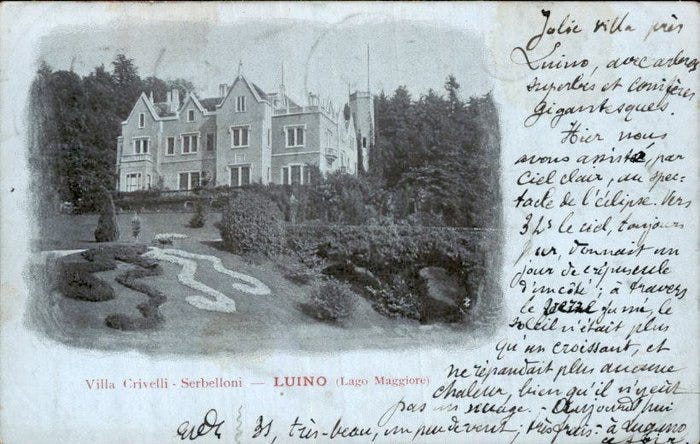 Jolie villa près
Luino, avec arbres
superbes et conifères
gigantesques.
Hier nous
avons assisté, par
ciel clair, au spec-
tacle de l'éclipse. Vers
3h½ le ciel, toujours
pur, donnait un
jour de crépuscule
d'un côté ; à travers
le verre fumé, le
soleil n'était plus
qu'un croissant, et
ne répandait plus aucune
chaleur, bien qu'il n'y eût
pas un nuage. - Aujourd'hui
31, très-beau, un peu de vent ; très frais - à Lugano
Villa Crivelli - Serbelloni — LUINO (Lago Maggiore)